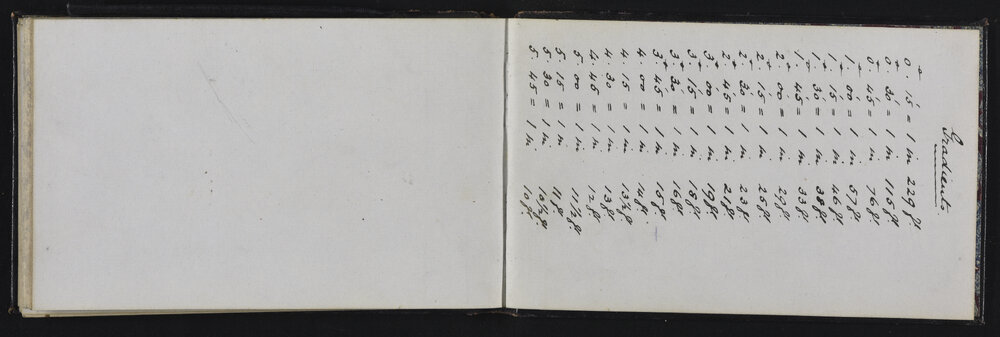 Gradients.
0°. 15' = 1 in 229 ft.
0°. 30' = 1 in 115 ft.
0°. 45' = 1 in 76 ft.
1°. 00' = 1 in 57 ft.
1°. 15' = 1 in 46 ft.
1°. 30' = 1 in 38 ft.
1°. 45' = 1 in 33 ft.
2°. 00' = 1 in 29 ft.
2°. 15' = 1 in 25 ft.
2°. 30' = 1 in 23 ft.
2°. 45' = 1 in 21 ft.
3°. 00' = 1 in 19 ft.
3°. 15' = 1 in 18 ft.
3°. 30' = 1 in 16 ft.
3°. 45' = 1 in 15 ft.
4. 00 = 1 in. 14 ft.
4. 15 = 1 in. 13½ ft.
4. 30 = 1 in. 13 ft.
4. 45 = 1 in. 12 ft.
5. 00 = 1 in. 11½ ft.
5. 15 = 1 in. 11 ft.
5. 30 = 1 in. 10½ ft.
5. 45 = 1 in. 10 ft.